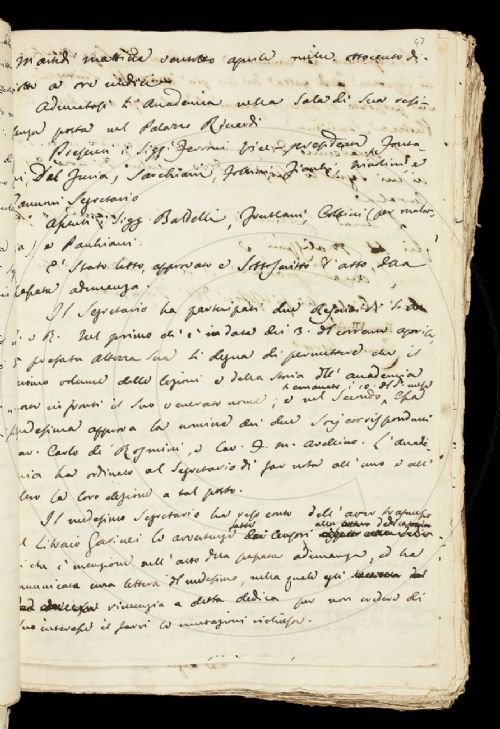 47
Martedì mattina ventotto aprile mille ottocento di-
otto a ore undici
Adunatasi l'Accademia nella Sala di sua resi-
denza posta nel Palazzo Riccardi
Presenti i Sigg. Ferroni Vice-presidente, Fonta-
ni, Del Furia, Sarchiani, Fiacchi, Martini e
Zannoni Segretario
Assenti i Sigg. Baldelli, Collini (per malat-
tia) e Pauliani.
È stato letto, approvato e sottoscritto l'atto della
passata adunanza.
Il Segretario ha partecipati due di S. A.
I. e R. Nel primo che è in data dei 3. del corrente aprile,
la prefata altezza Sua si degna di permettere che il
primo volume delle lezioni e della storia dell'accademia
porti in fronti il suo venerato nome; e nel secondo, emanato i 10. del d. mese
medesima approva la nomina dei due Soci corrispondenti
Cav. Carlo de Rosmini, e Cav. F. M. Avellino. L'Acade-
mia ha ordinato al Segretario di far nota all'uno e all'
altro la loro elezione a tal posto.
Il medesimo Segretario ha reso conto dell'aver trasmesse
al Libraio le avvertenze fatte dai Censori alla dedicatoria
di che è menzione nell'atto della passata adunanza, ed ha
comunicata una lettera del medesimo, nella quale egli
rinunzia a detta dedica per non credere di
suo interesse il farvi le mutazioni richieste.